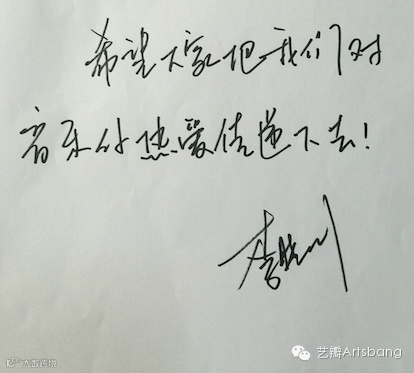 希望大家把我们对
音乐的热爱传递下去！
李晓川
艺瓣Artsbang